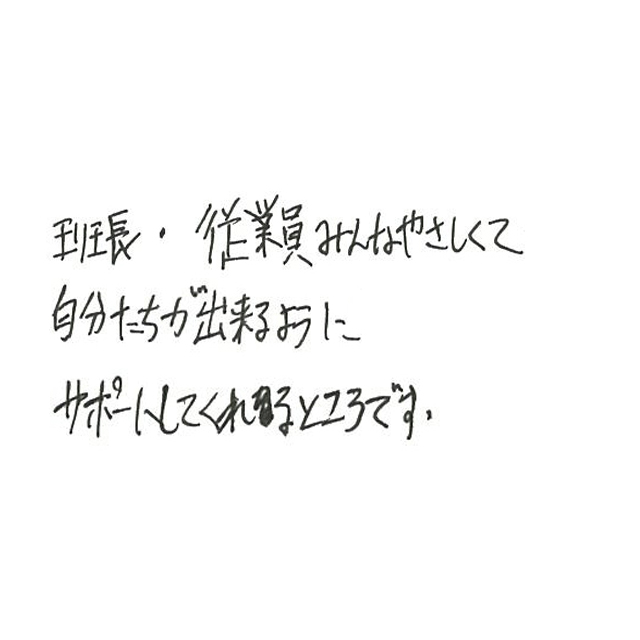 班長・従業員みんなやさしくて
自分たちが出来るように
サポートしてくれるところです。